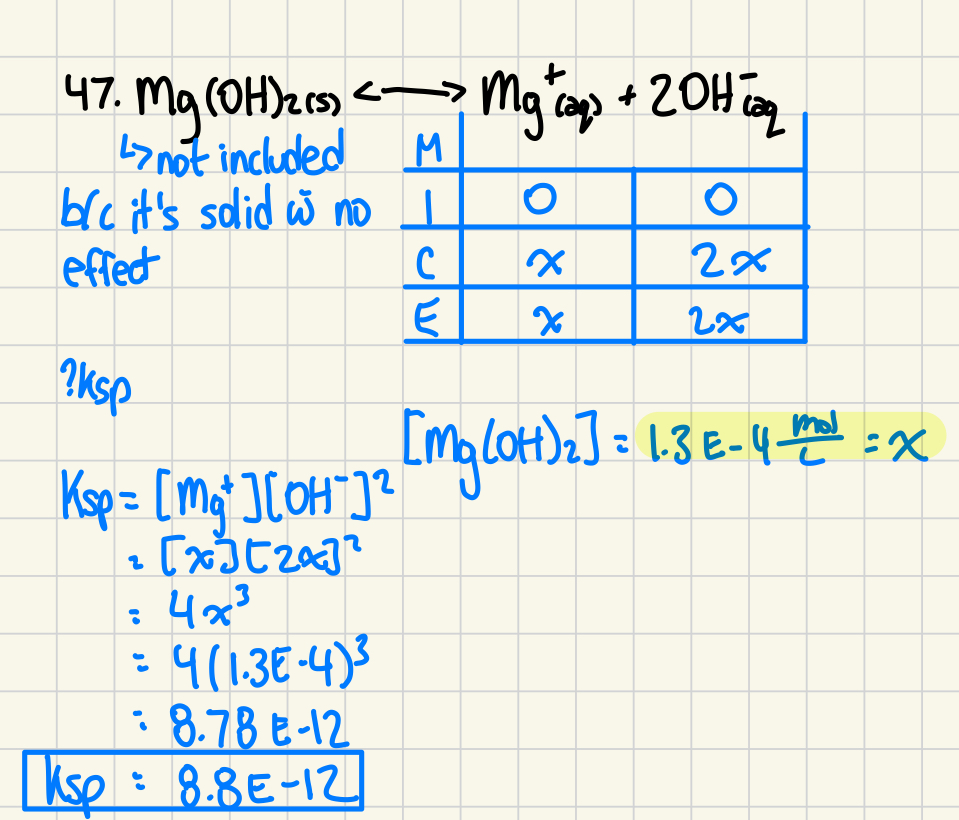 47. Mg(OH)₂(s) ⟷ Mg⁺(aq) + 2OH⁻(aq
↳ not included
b/c it's solid w̄ no
effect
M
I 0 0
C x 2x
E x 2x
?Ksp
[Mg(OH)₂] = 1.3E-4 mol/L = x
Ksp = [Mg⁺][OH⁻]²
= [x][2x]²
= 4x³
= 4(1.3E-4)³
= 8.78E-12
Ksp = 8.8E-12